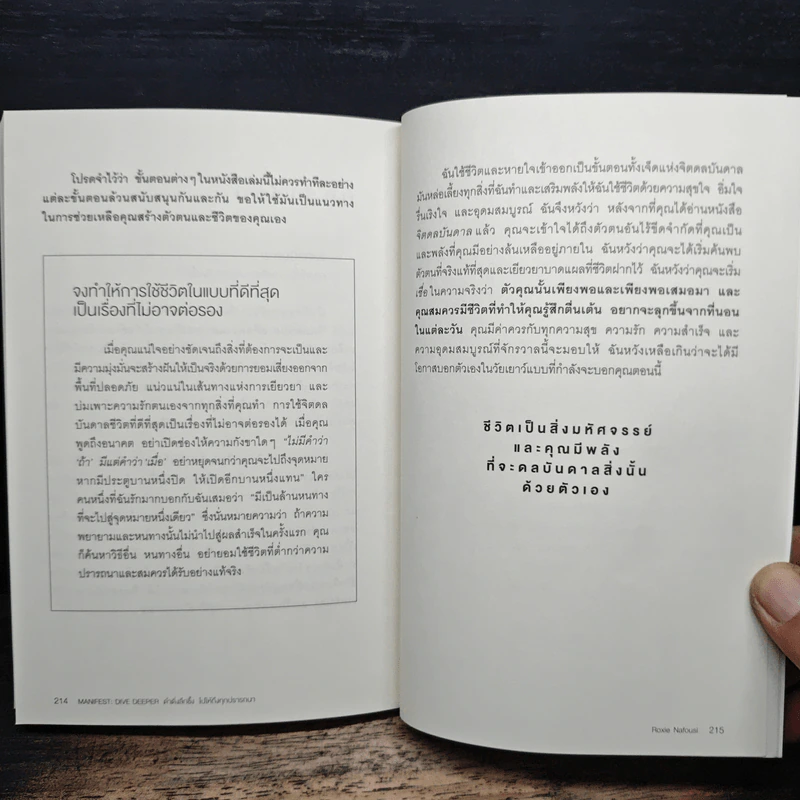 โปรดจำไว้ว่า ขั้นตอนต่างๆ ในหนังสือเล่มนี้ไม่ควรทำทีละอย่าง
แต่ละขั้นตอนล้วนสนับสนุนกันและกัน ขอให้ใช้มันเป็นแนวทาง
ในการช่วยเหลือคุณสร้างตัวตนและชีวิตของคุณเอง
จงทำให้การใช้ชีวิตในแบบที่ดีที่สุด
เป็นเรื่องที่ไม่อาจต่อรอง
เมื่อคุณแน่ใจอย่างชัดเจนถึงสิ่งที่ต้องการจะเป็นและ
มีความมุ่งมั่นจะสร้างฝันให้เป็นจริงด้วยการยอมเสี่ยงออกจาก
พื้นที่ปลอดภัย แน่วแน่ในเส้นทางแห่งการเยียวยา และ
บ่มเพาะความรักตนเองจากทุกสิ่งที่คุณทำ การใช้จิตดล
บันดาลชีวิตที่ดีที่สุดเป็นเรื่องที่ไม่อาจต่อรองได้ เมื่อคุณ
พูดถึงอนาคต อย่าเปิดช่องให้ความกังขาใดๆ "ไม่มีคำว่า
'ถ้า' มีแต่คำว่า 'เมื่อ'" อย่าหยุดจนกว่าคุณจะไปถึงจุดหมาย
หากมีประตูบานหนึ่งปิด ให้เปิดอีกบานหนึ่งแทน" ใคร
คนหนึ่งที่ฉันรักมากบอกกับฉันเสมอว่า "มีเป็นล้านหนทาง
ที่จะไปสู่จุดหมายหนึ่งเดียว" ซึ่งนั่นหมายความว่า ถ้าความ
พยายามและหนทางนั้นไม่นำไปสู่ผลสำเร็จในครั้งแรก คุณ
ก็ค้นหาวิธีอื่น หนทางอื่น อย่ายอมใช้ชีวิตที่ต่ำกว่าความ
ปรารถนาและสมควรได้รับอย่างแท้จริง
214 MANIFEST: DIVE DEEPER ดำดิ่งลึกซึ้ง ไปให้ถึงทุกปรารถนา
ฉันใช้ชีวิตและหายใจเข้าออกเป็นขั้นตอนทั้งเจ็ดแห่งจิตดลบันดาล
มันหล่อเลี้ยงทุกสิ่งที่ฉันทำและเสริมพลังให้ฉันใช้ชีวิตด้วยความสุขใจ อิ่มใจ
รื่นเริงใจ และอุดมสมบูรณ์ ฉันจึงหวังว่า หลังจากที่คุณได้อ่านหนังสือ
จิตดลบันดาล แล้ว คุณจะเข้าใจได้ถึงตัวตนอันไร้ขีดจำกัดที่คุณเป็น
และพลังที่คุณมีอย่างล้นเหลืออยู่ภายใน ฉันหวังว่าคุณจะได้เริ่มค้นพบ
ตัวตนที่จริงแท้ที่สุดและเยียวยาบาดแผลที่ชีวิตฝากไว้ ฉันหวังว่าคุณจะเริ่ม
เชื่อในความจริงว่า ตัวคุณนั้นเพียงพอและเพียงพอเสมอมา และ
คุณสมควรมีชีวิตที่ทำให้คุณรู้สึกตื่นเต้น อยากจะลุกขึ้นจากที่นอน
ในแต่ละวัน คุณมีค่าควรกับทุกความสุข ความรัก ความสำเร็จ และ
ความอุดมสมบูรณ์ที่จักรวาลนี้จะมอบให้ ฉันหวังเหลือเกินว่าจะได้มี
โอกาสบอกตัวเองในวัยเยาว์แบบที่กำลังจะบอกคุณตอนนี้
ชีวิตเป็นสิ่งมหัศจรรย์
และคุณมีพลัง
ที่จะดลบันดาลสิ่งนั้น
ด้วยตัวเอง
Roxie Nafousi 215